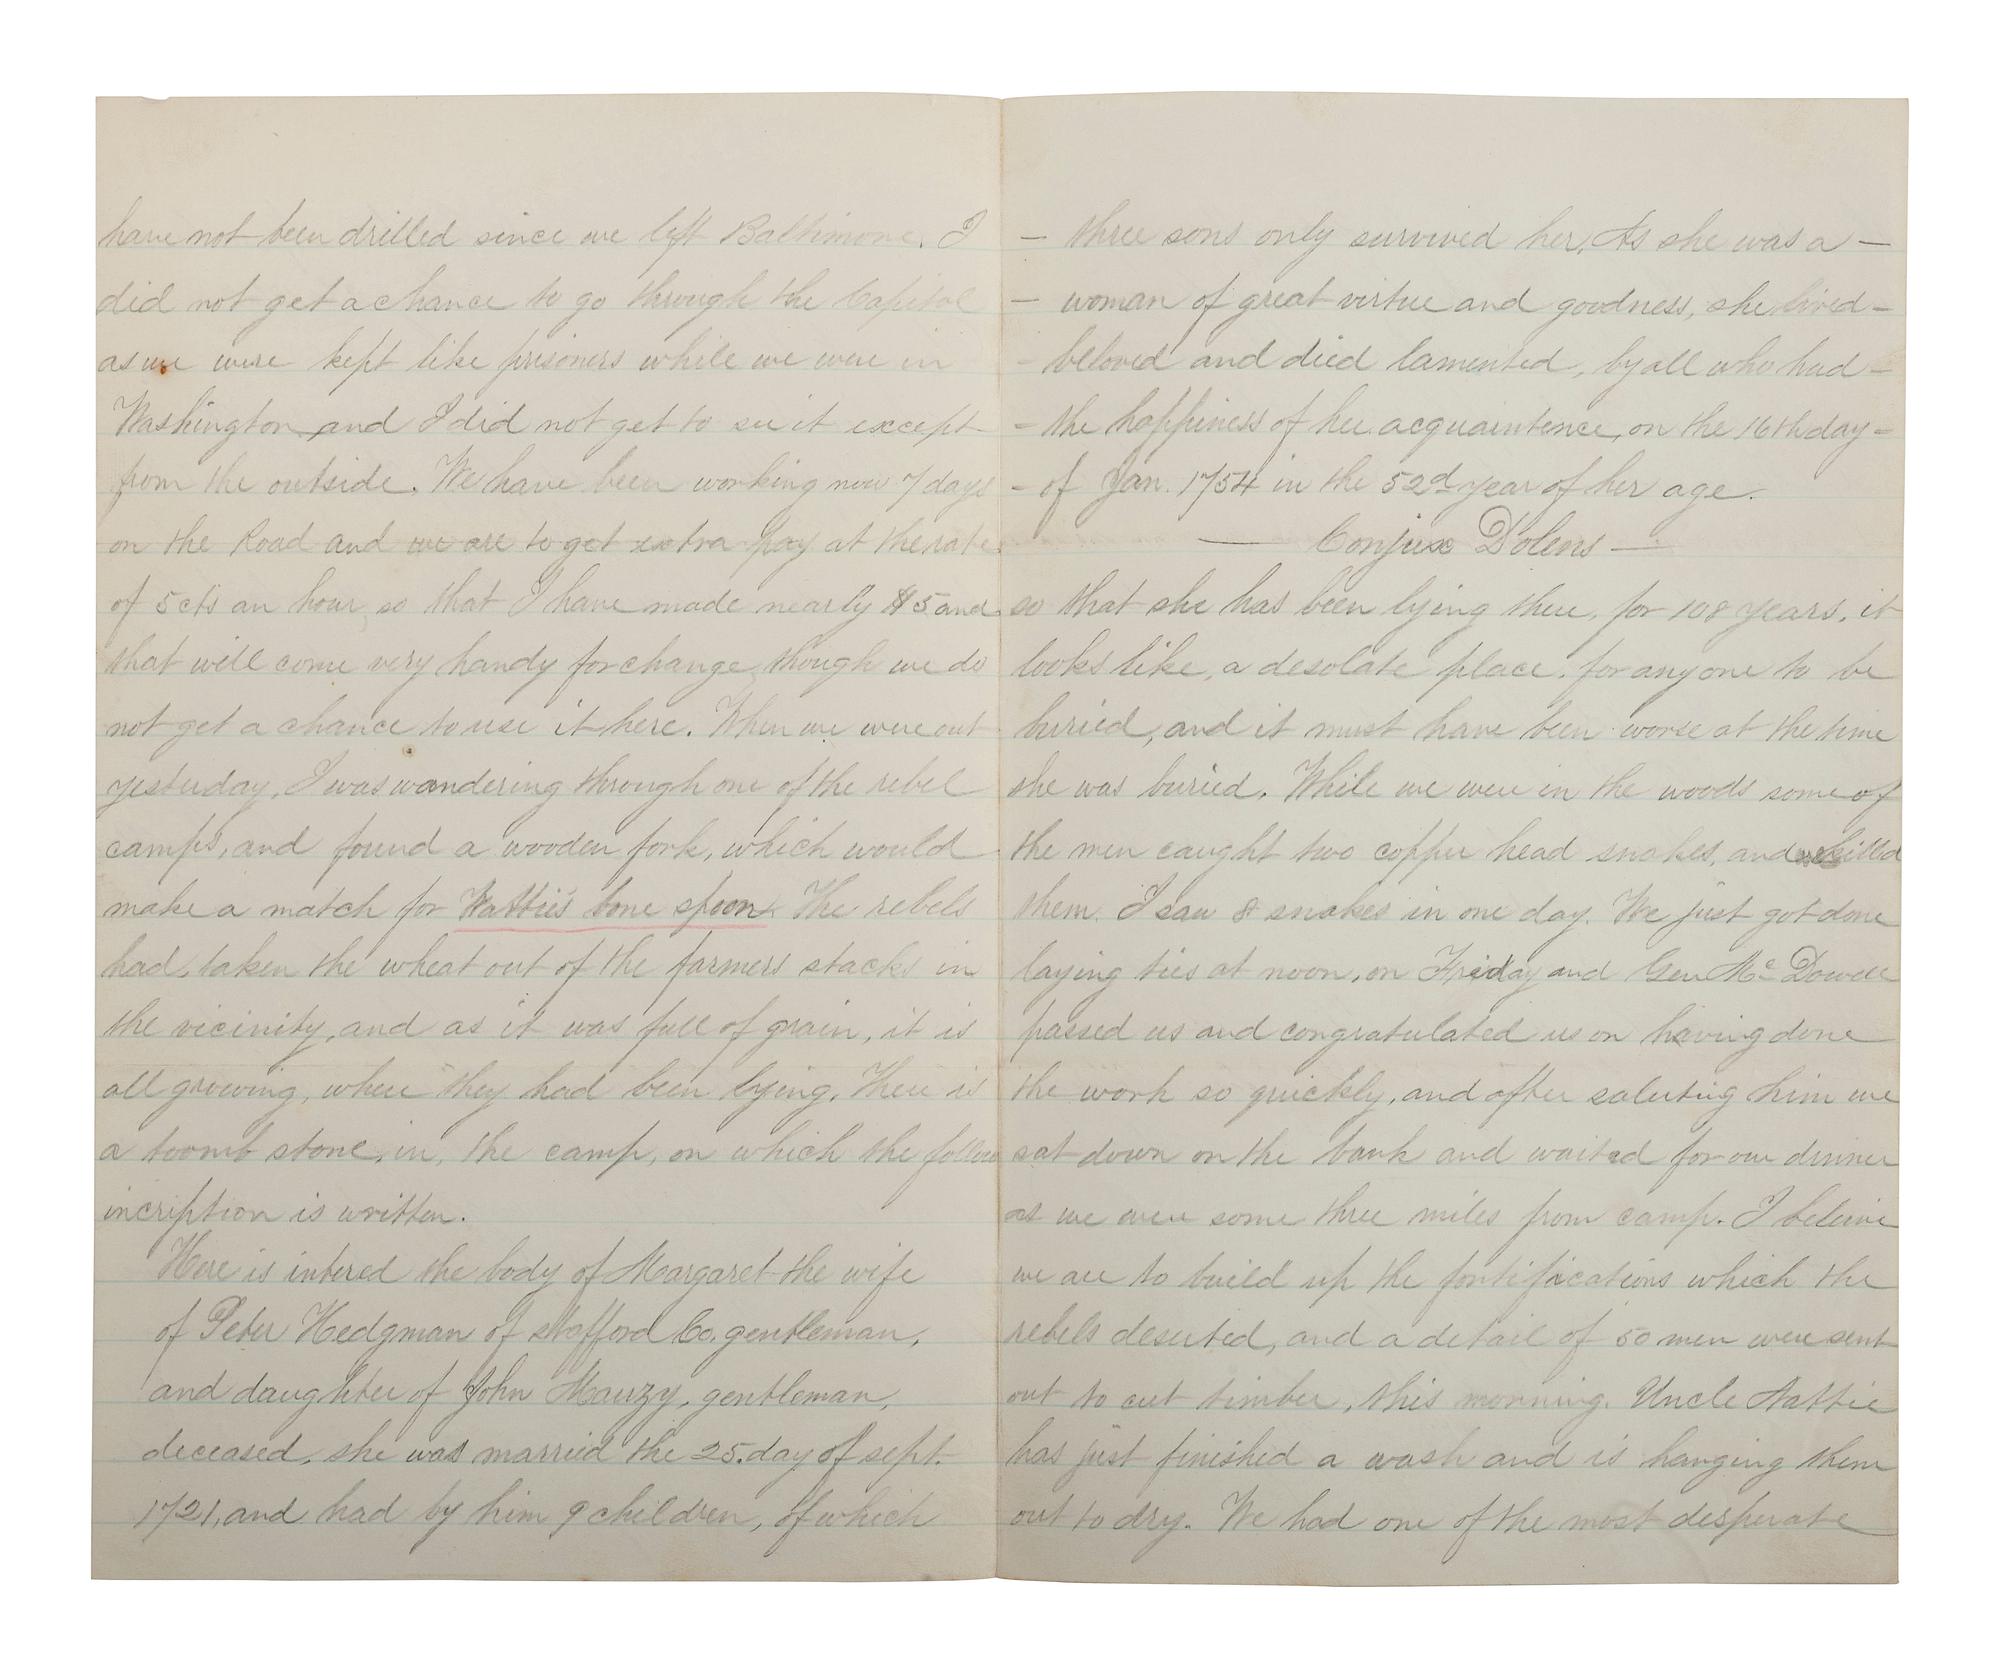 have not been drilled since we left Baltimore. I
did not get a chance to go through the Capitol
as we were kept like prisoners while we were in
Washington and I did not get to see it except
from the outside. We have been working now 7 days
on the Road and we are to get extra pay at the rate
of 5 cts an hour, so that I have made nearly $5 and
that will come very handy for change, though we do
not get a chance to use it here. When we were out
yesterday, I was wandering through one of the rebel
camps, and found a wooden fork, which would
make a match for Wattie's bone spoon. The rebels
had, taken the wheat out of the farmers stacks in
the vicinity, and as it was full of grain, it is
all growing, where they had been lying. There is
a toomb stone, in, the camp, on which the follow
incription is written.
Here is intered the body of Margaret the wife
of Peter Hedgman of Stafford Co. gentleman,
and daughter of John Mauzy, gentleman,
deceased, she was married the 25. day of sept.
1721, and had by him 9 children, of which
— three sons only survived her, As she was a —
— woman of great virtue and goodness, she lived —
- beloved and died lamented, by all who had -
- the happiness of her acquaintence, on the 16th day -
- of Jan. 1754 in the 52d year of her age.
— Conjux Dolens —
so that she has been lying there, for 108 years, it
looks like, a desolate place, for anyone to be
buried, and it must have been worse at the time
she was buried. While we were in the woods some of
the men caught two copper head snakes, and killed
them. I saw 8 snakes in one day. We just got done
laying ties at noon, on Friday and Gen Mc Dowell
passed us and congratulated us on having done
the work so quickly, and after saluting him we
sat down on the bank and waited for our dinner
as we were some three miles from camp. I beleive
we are to build up the fortifications which the
rebels deserted, and a detail of 50 men were sent
out to cut timber, this morning. Uncle Wattie
has just finished a wash and is hanging them
out to dry. We had one of the most desperate